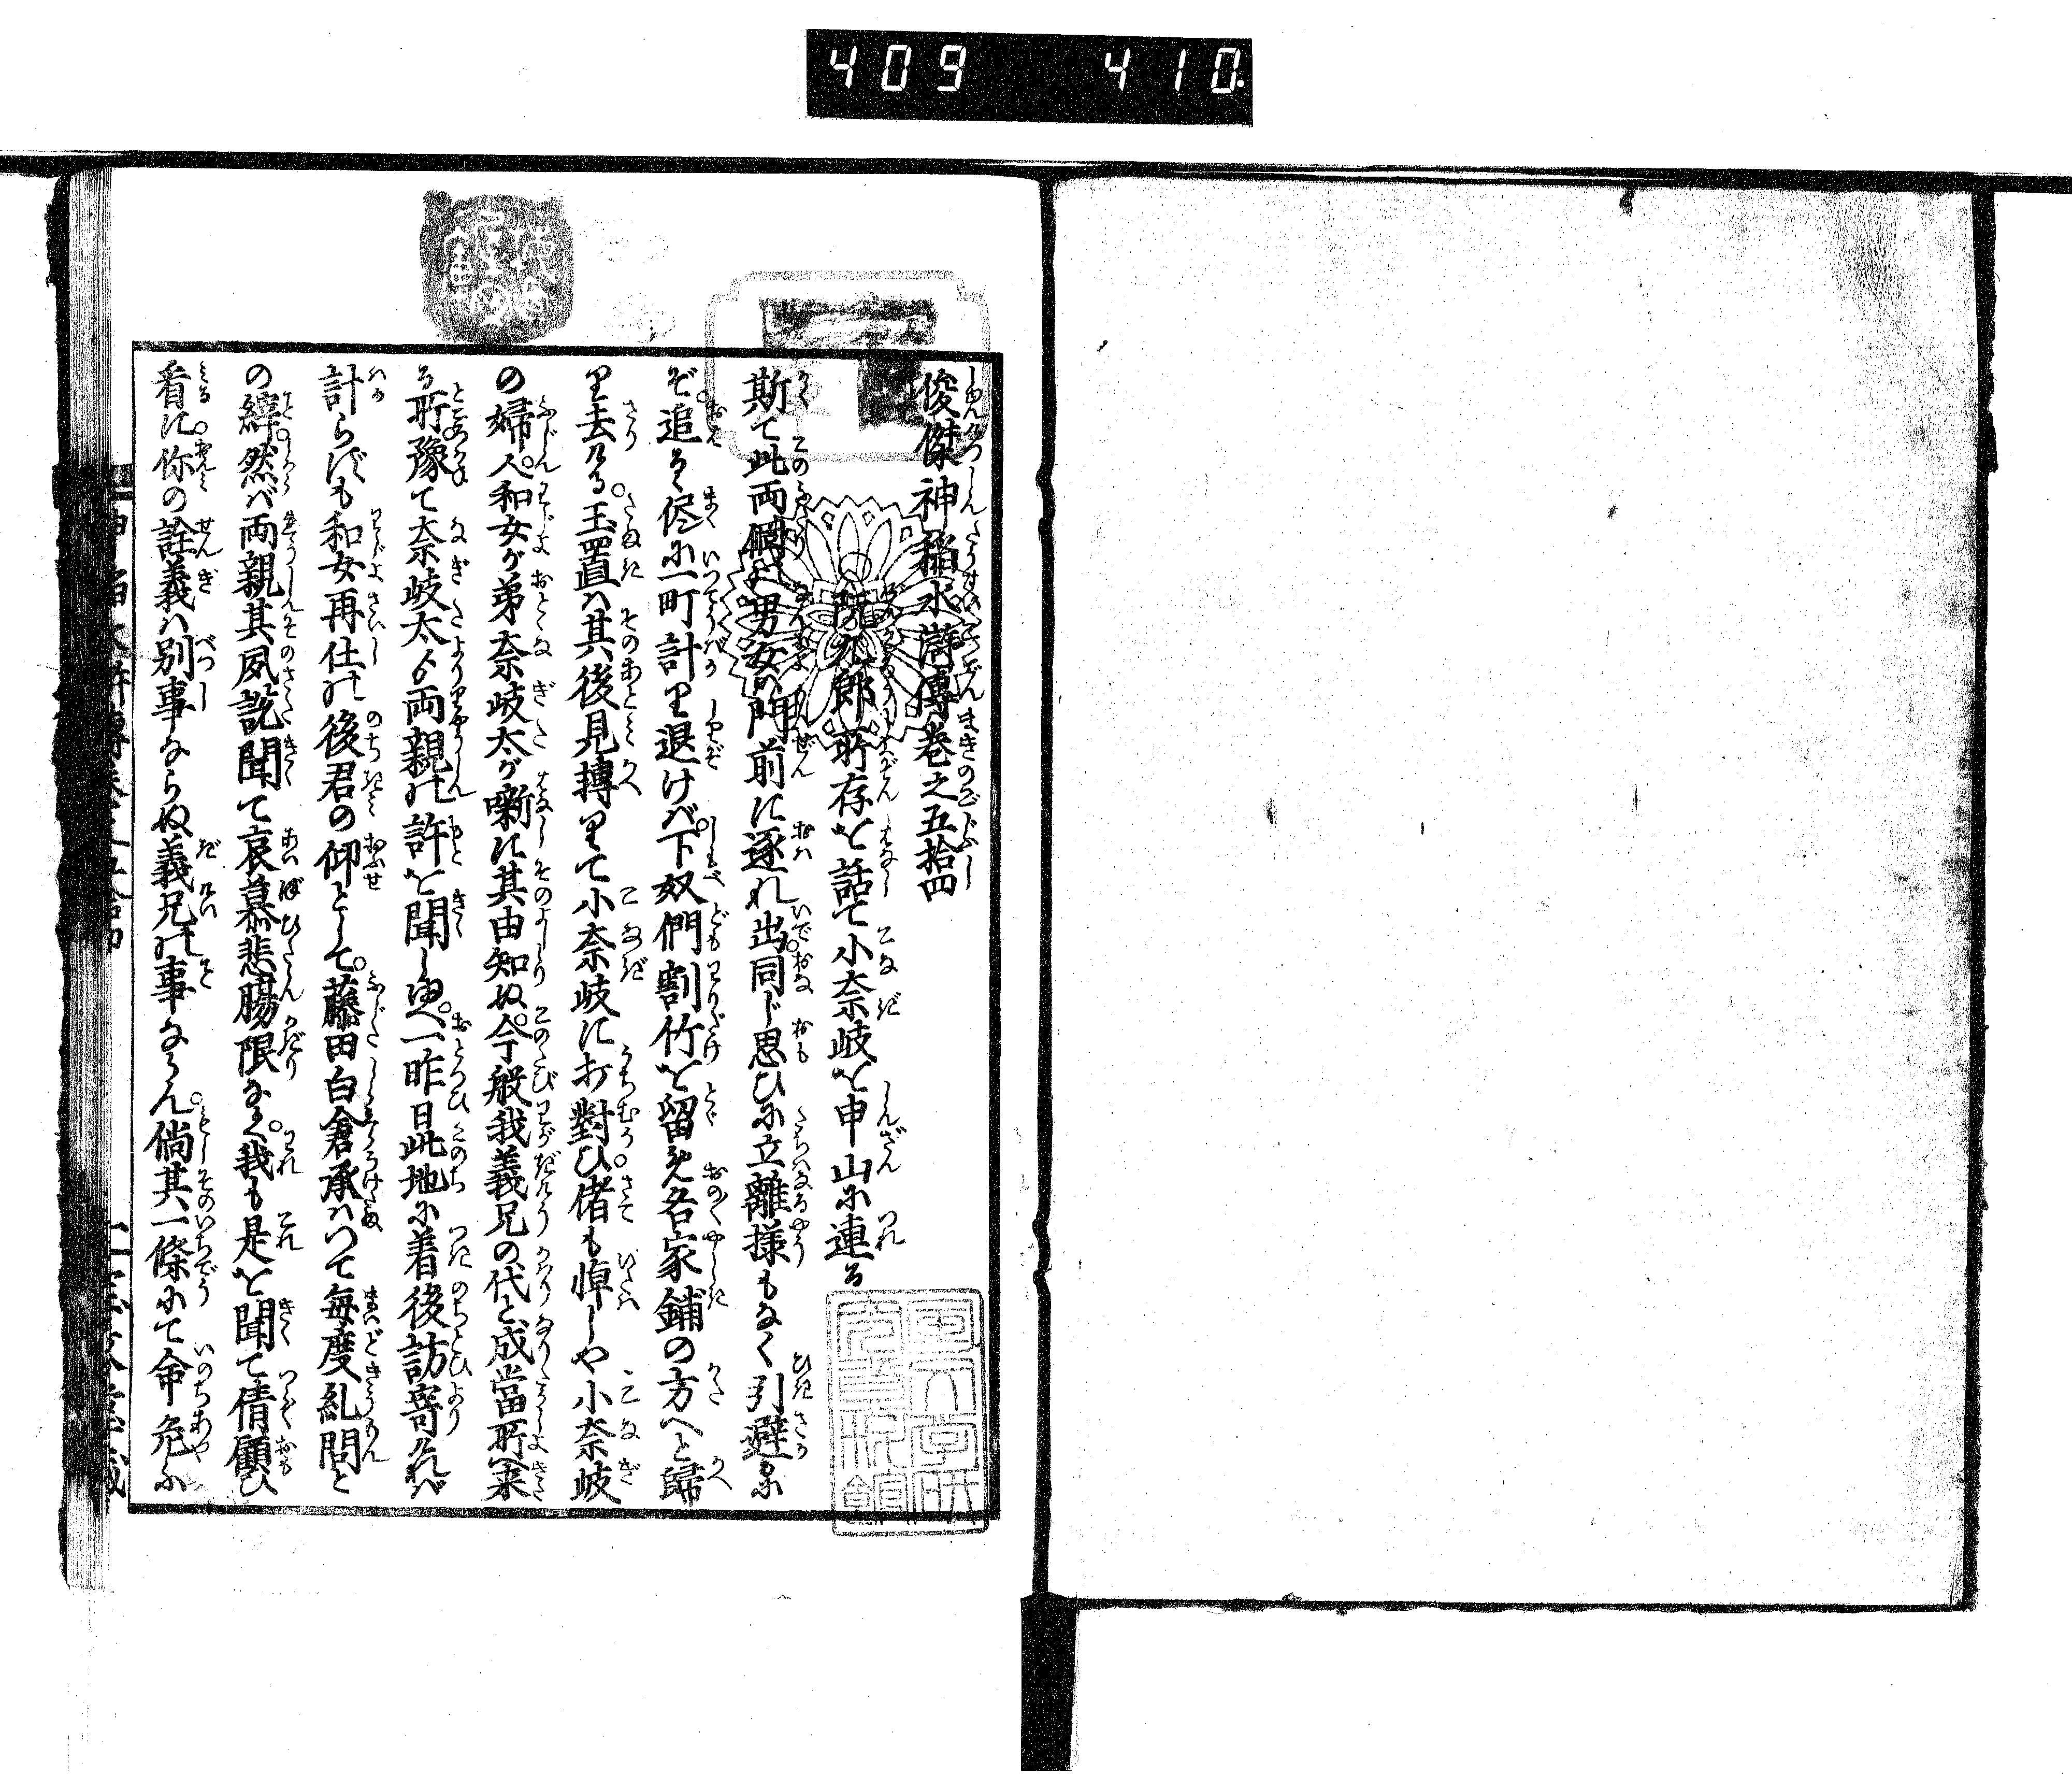 409 410
俊傑神稲水滸傳巻之五拾四
九郎所存を話て小奈岐を申山に連る
斯て此両個の男女の門前に逐れ出同じ思ひに立離様もなく引避かに
ぞ追るゝ侭に一町計り退けば下奴們割竹を留め各家鋪の方へと歸
り去ける玉置ハ其後見摶りて小奈岐に打對ひ偖も悼しや小奈岐
の婦人和女が弟奈岐太が噺に其由知ぬ今般我義兄の代と成當所へ来
る所豫て奈岐太より両親の許を聞し由へ一昨日此地に着後訪寄けれバ
計らずも和女再仕の後君の仰として藤田白倉承ハつて毎度糺問と
の緯然バ両親其風説聞て哀慕悲腸限なく我も是を聞て倩顧ひ
看に你の詮義ハ別事ならぬ義兄の事ならん倘其一條にて命危ふ